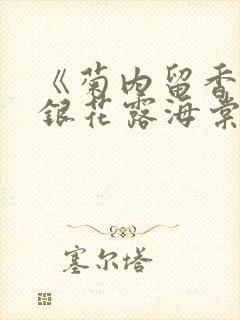 《菊内留香
銀花露海棠
塞尔塔